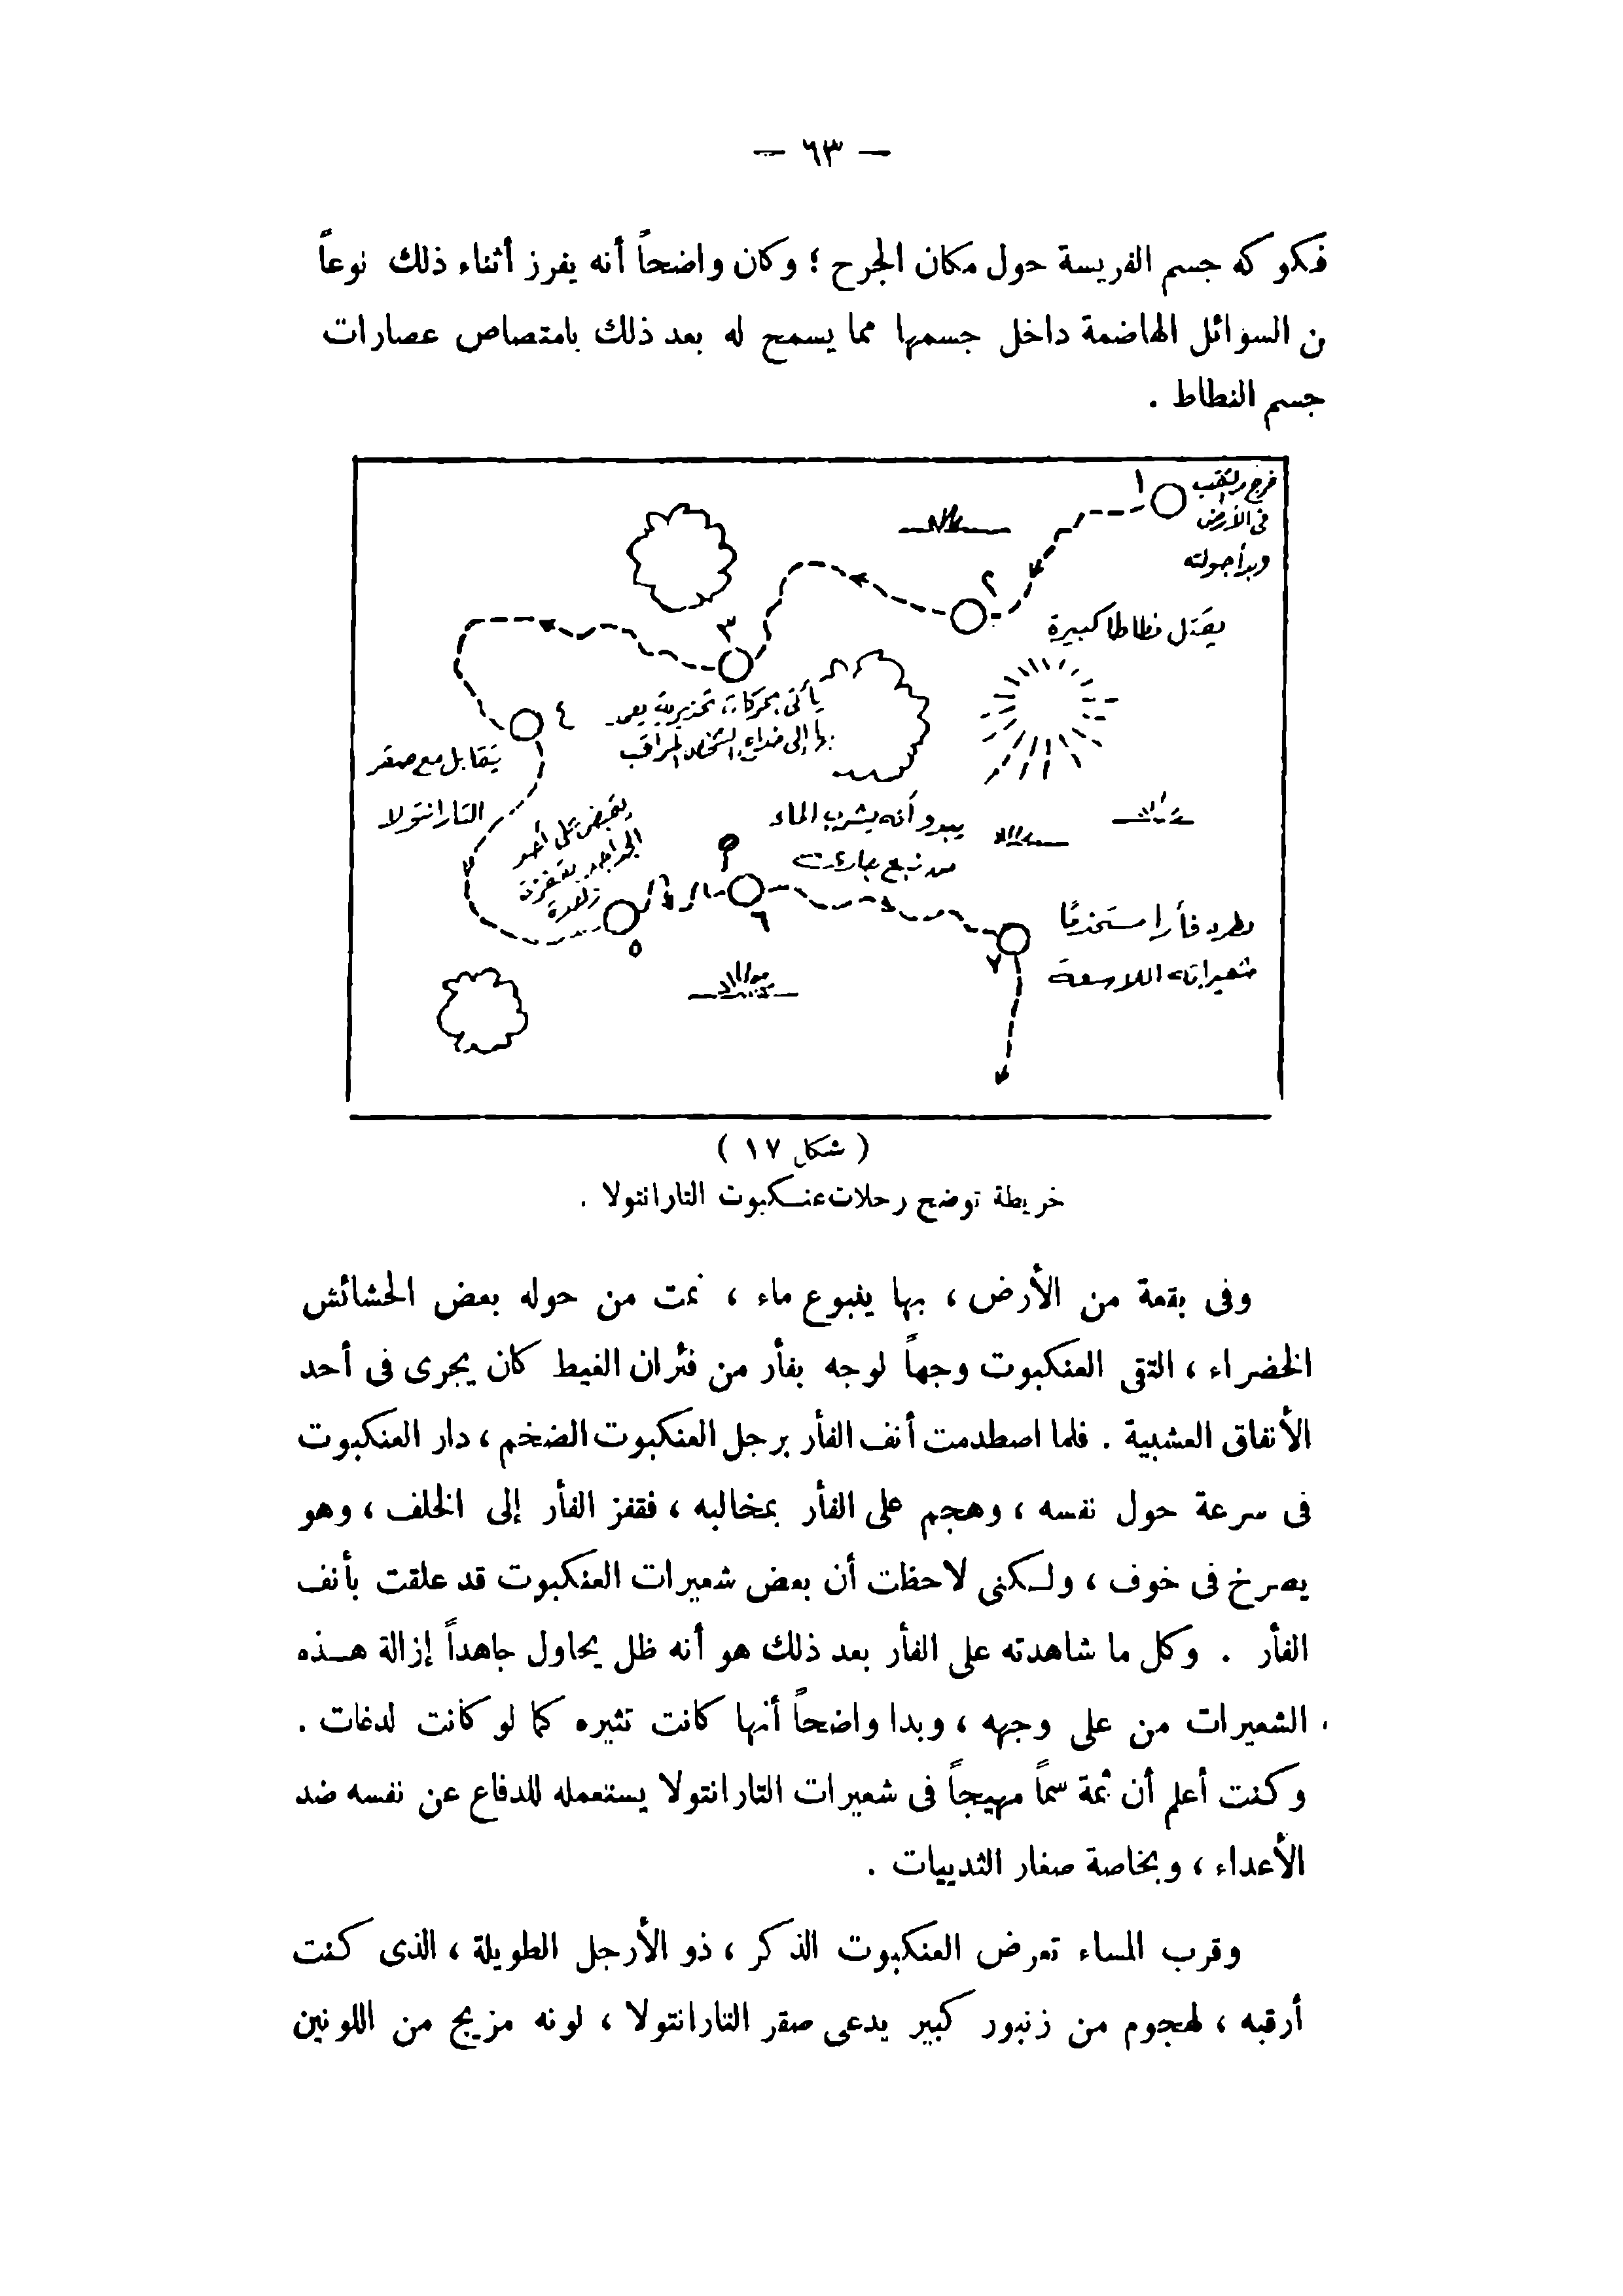 — ٦٣ —
فكوكه جسم الفريسة حول مكان الجرح ؛ وكان واضحاً أنه يفرز أثناء ذلك نوعاً
ن السوائل الهاضمة داخل جسمها مما يسمح له بعد ذلك بامتصاص عصارات
جسم النطاط .
١
فى الأرض
وبدأ جولته
٢
يقتل نطاطا كبيرة
٣
يأتى بحركات تحذيرية
بها إلى
المراقب
٤
يتقابل مع صقر
التارانتولا
يقبض على أحد
٥
يبدو أنه يشرب الماء
من نبع جار
٦
يطرد فأرا مستخدمًا
شعيراته اللاسعة
٧
( شكل ١٧ )
خريطة توضح رحلات عنكبوت التارانتولا .
وفى بقعة من الأرض ، بها ينبوع ماء ، نمت من حوله بعض الحشائش
الخضراء ، التقى العنكبوت وجهاً لوجه بفأر من فئران الغيط كان يجرى فى أحد
الأنفاق العشبية . فلما اصطدمت أنف الفأر برجل العنكبوت الضخم ، دار العنكبوت
فى سرعة حول نفسه ، وهجم على الفأر بمخالبه ، فقفز الفأر إلى الخلف ، وهو
يصرخ فى خوف ، ولكنى لاحظت أن بعض شعيرات العنكبوت قد علقت بأنف
الفأر . وكل ما شاهدته على الفأر بعد ذلك هو أنه ظل يحاول جاهداً إزالة هذه
الشعيرات من على وجهه ، وبدا واضحاً أنها كانت تثيره كما لو كانت لدغات .
وكنت أعلم أن ثمة سماً مهيجاً فى شعيرات التارانتولا يستعمله للدفاع عن نفسه ضد
الأعداء ، وبخاصة صغار الثدييات .
وقرب المساء تعرض العنكبوت الذكر ، ذو الأرجل الطويلة ، الذى كنت
أرقبه ، لهجوم من زنبور كبير يدعى صقر التارانتولا ، لونه مزيج من اللونين